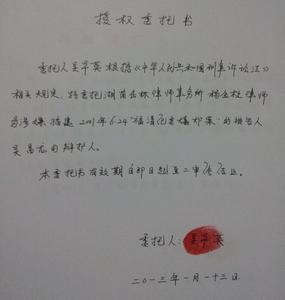 授权委托书
委托人吴华英根据《中华人民共和国刑事诉讼法》
相关规定，特委托湖南岳林律师事务所杨金柱律师
为涉嫌福建2001年6·24"福清纪委爆炸案"的被告人
吴昌龙的辩护人。
本委托书有效期自即日起至二审终结止。
委托人：吴华英
二〇一三年一月十三日